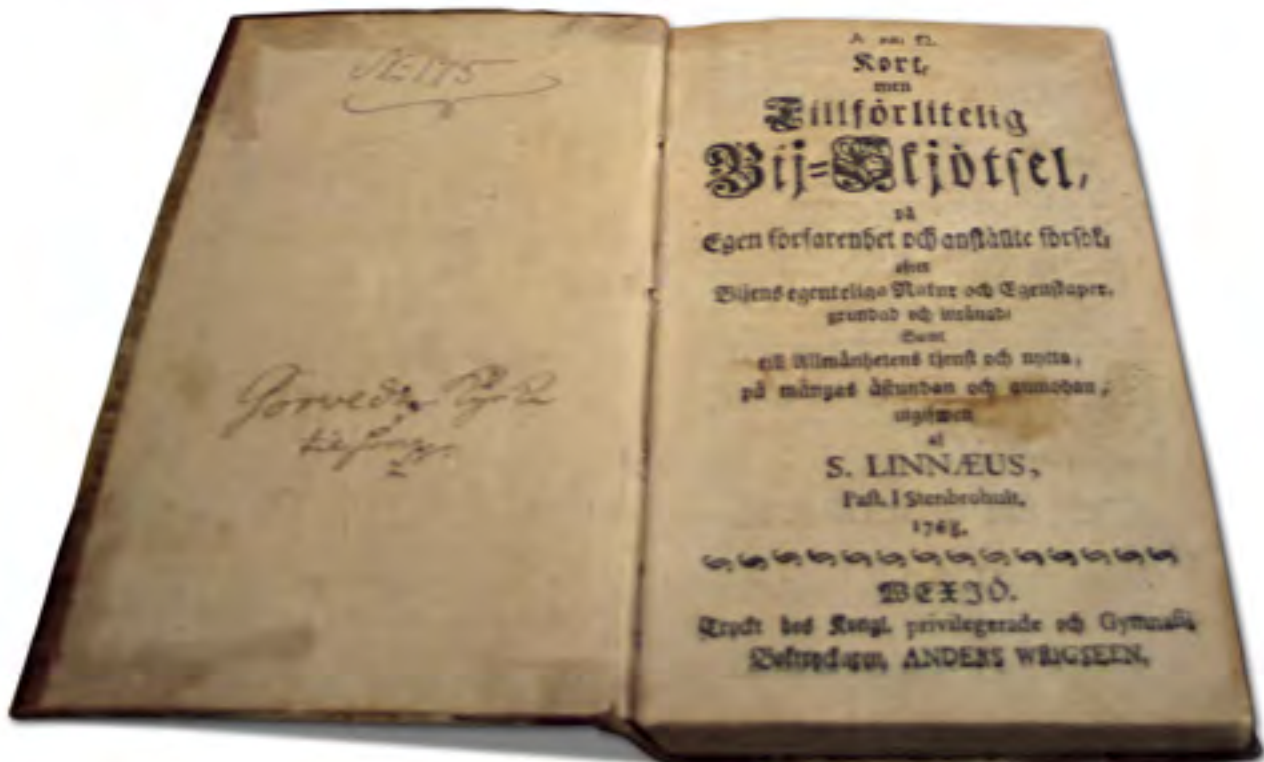 Kort,
men
Tillförlitelig
Bij=Skjötsel,
på
Egen förfarenhet och anställte försök,
efter
Bijens egenteliga Natur och Egenskaper,
grundad och inrättad;
Samt
till Allmänhetens tjenst och nytta,
på mångas åstundan och anmodan,
utgifwen
af
S. LINNÆUS,
Past. i Stenbrohult.
1768.
WEXJÖ.
Tryckt hos Kongl. privilegerade och Gymnasii
Boktryckaren, ANDERS WRIGSEEN,